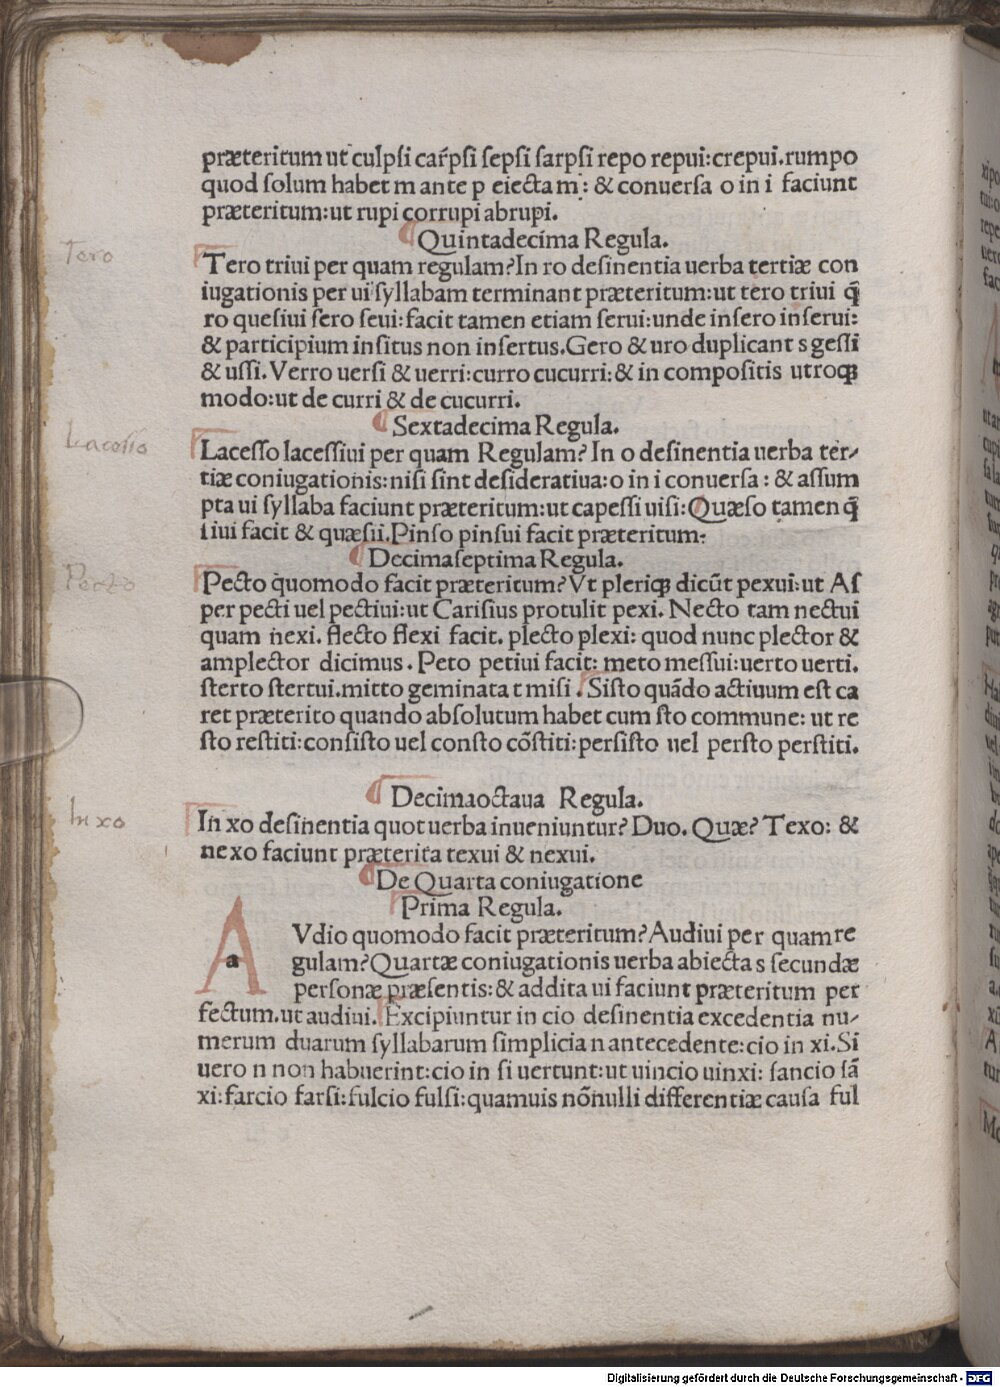 præteritum ut culpſi carpſi ſepſi ſarpſi repo repui:crepui.rumpo
quod ſolum habet m ante p eiecta m: & conuerſa o in i faciunt
præteritum:ut rupi corrupi abrupi.
Quintadecima Regula.
Tero
Tero triui per quam regulam?In ro deſinentia uerba tertiæ con
iugationis per ui ſyllabam terminant præteritum:ut tero triui q̄
ro queſiui ſero ſeui:facit tamen etiam ſerui:unde inſero inſerui:
& participium inſitus non inſertus.Gero & uro duplicant s geſſi
& uſſi.Verro uerſi & uerri:curro cucurri:& in compoſitis utroqꝫ
modo:ut de curri & de cucurri.
Sextadecima Regula.
Lacesso
Laceſſo laceſſiui per quam Regulam? In o deſinentia uerba ter⸗
tiæ coniugationis:niſi ſint deſideratiua:o in i conuerſa : & aſſum
pta ui ſyllaba faciunt præteritum:ut capeſſi uiſi:Quæſo tamen q̄
ſiui facit & quæſii.Pinſo pinſui facit præteritum:
Decimaſeptima Regula.
Pecto
Pecto quomodo facit præteritum? Vt pleriqꝫ dicūt pexui:ut Aſ
per pecti uel pectiui:ut Cariſius protulit pexi. Necto tam nectui
quam nexi. flecto flexi facit. plecto plexi: quod nunc plector &
amplector dicimus. Peto petiui facit: meto meſſui:uerto uerti.
ſterto ſtertui.mitto geminata t miſi. Siſto quādo actiuum eſt ca
ret præterito quando abſolutum habet cum ſto commune: ut re
ſto reſtiti:conſiſto uel conſto cōſtiti:perſiſto uel perſto perſtiti.
Decimaoctaua Regula.
In xo
In xo deſinentia quot uerba inueniuntur? Duo. Quæ? Texo: &
nexo faciunt præterita texui & nexui.
De Quarta coniugatione
Prima Regula.
A
a
Vdio quomodo facit præteritum?Audiui per quam re
gulam?Quartæ coniugationis uerba abiecta s ſecundæ
perſonæ præſentis:& addita ui faciunt præteritum per
fectum.ut audiui. Excipiuntur in cio deſinentia excedentia nu⸗
merum duarum ſyllabarum ſimplicia n antecedente:cio in xi.Si
uero n non habuerint:cio in ſi uertunt:ut uincio uinxi: ſancio ſā
xi:farcio farſi:fulcio fulſi:quamuis nōnulli differentiæ cauſa ful
Digitalisierung gefördert durch die Deutsche Forschungsgemeinschaft - DFG